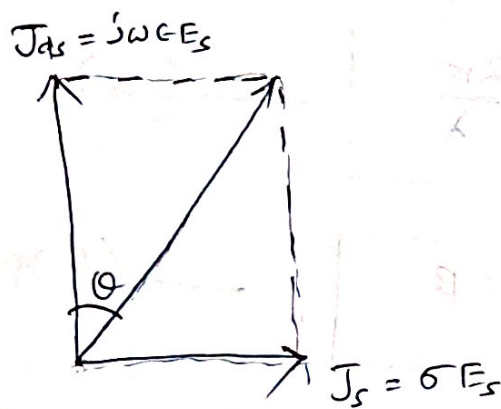 J_ds = jωϵE_s
θ
J_s = σE_s